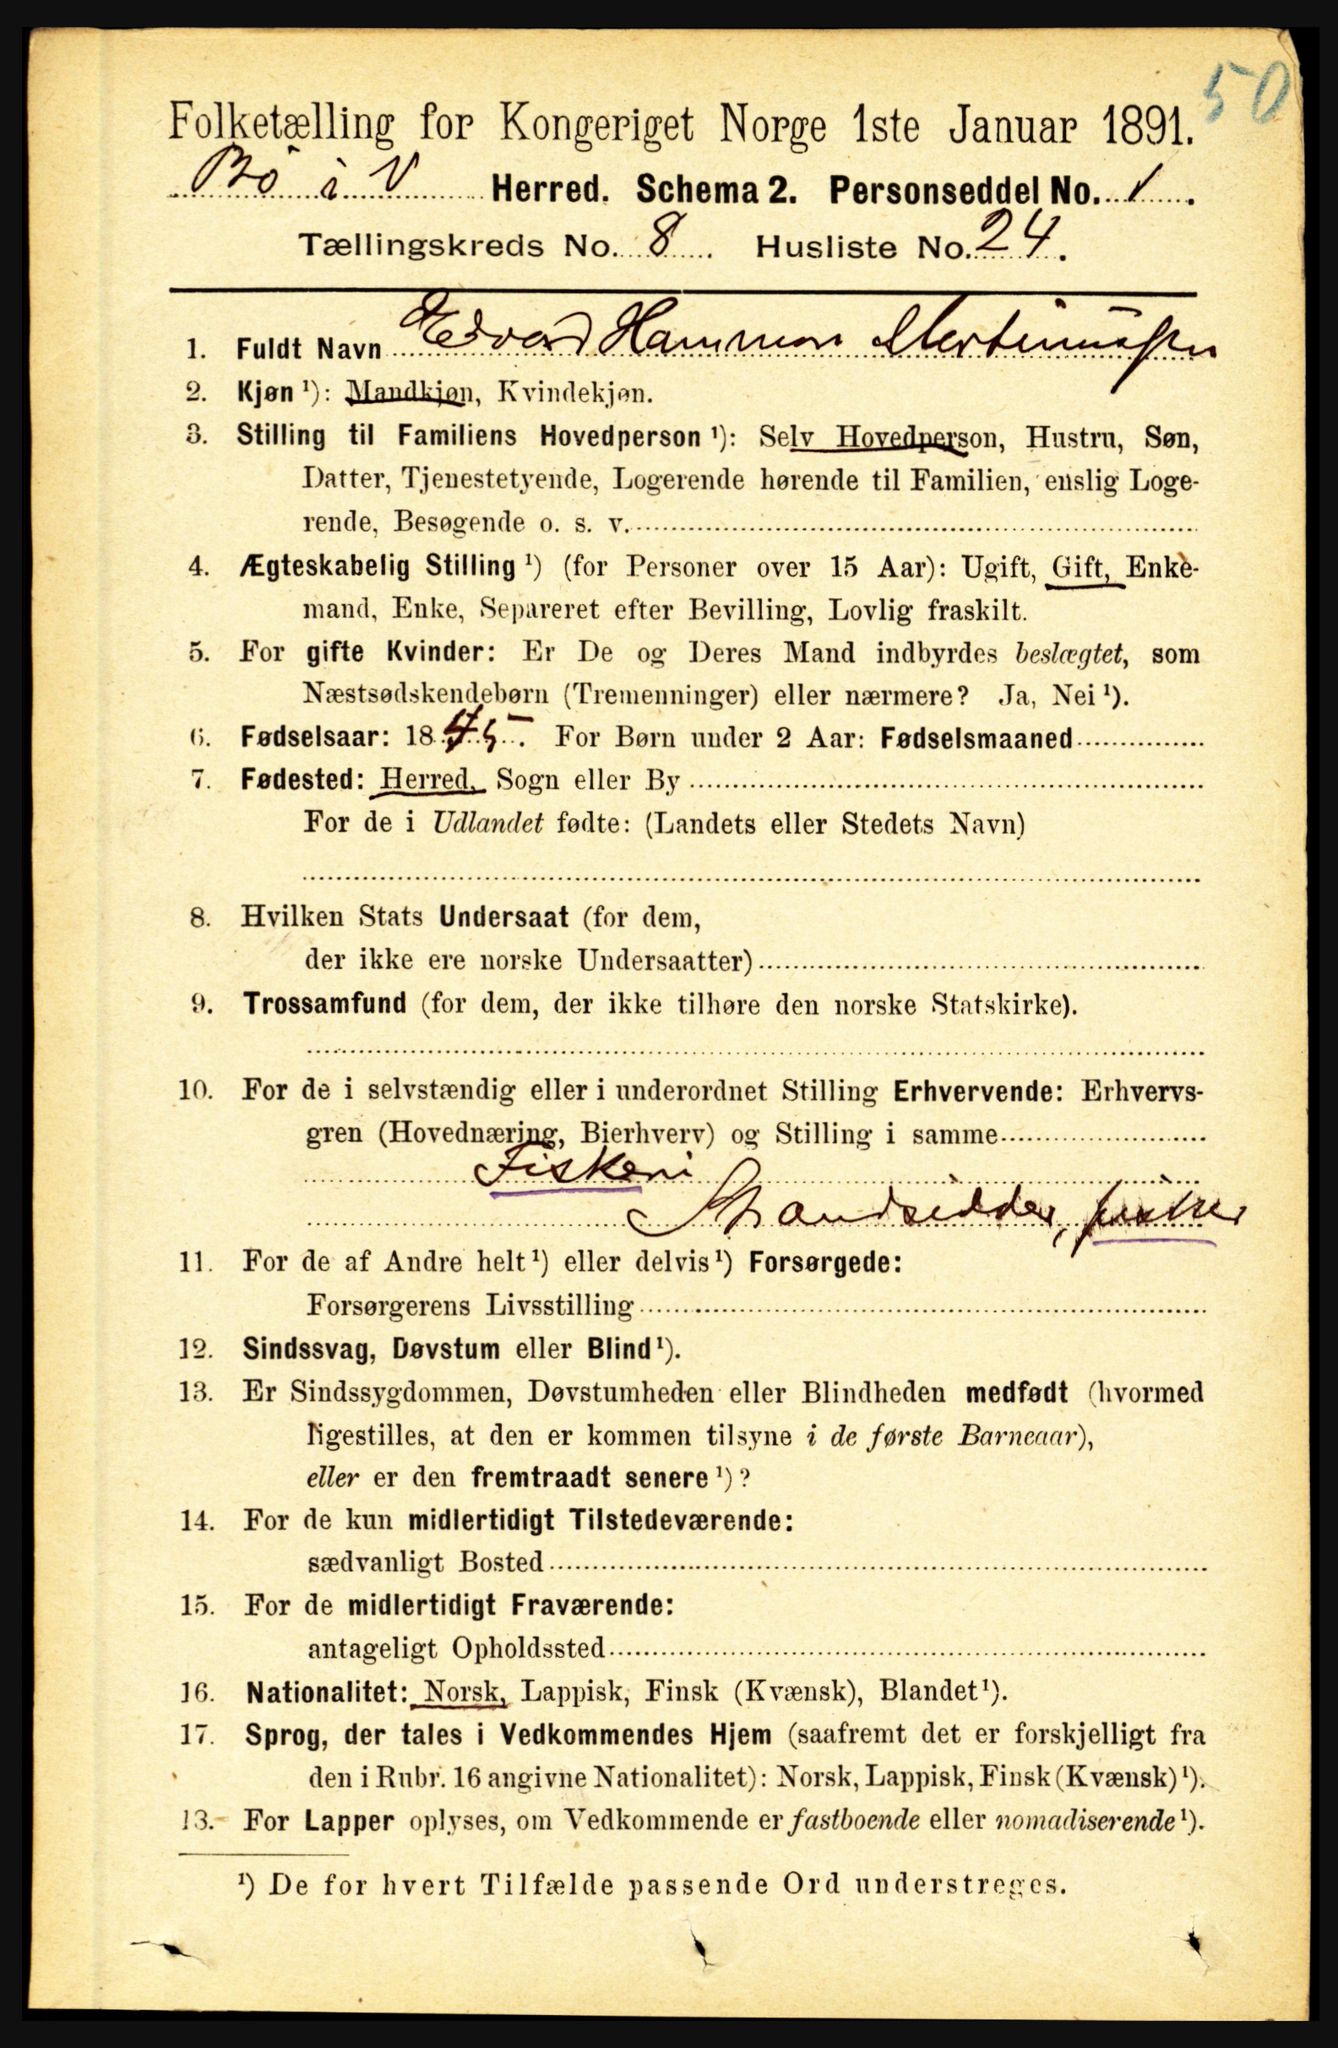 50
Folketælling for Kongeriget Norge 1ste Januar 1891.
Bö i V Herred. Schema 2. Personseddel No. 1.
Tællingskreds No. 8. Husliste No. 24.
1. Fuldt Navn Edvard Hammon Martinussen
2. Kjøn ¹): Mandkjøn, Kvindekjøn.
3. Stilling til Familiens Hovedperson ¹): Selv Hovedperson, Hustru, Søn,
Datter, Tjenestetyende, Logerende hørende til Familien, enslig Loge-
rende, Besøgende o. s. v.
4. Ægteskabelig Stilling ¹) (for Personer over 15 Aar): Ugift, Gift, Enke-
mand, Enke, Separeret efter Bevilling, Lovlig fraskilt.
5. For gifte Kvinder: Er De og Deres Mand indbyrdes beslægtet, som
Næstsødskendebørn (Tremenninger) eller nærmere? Ja, Nei ¹).
6. Fødselsaar: 1845. For Børn under 2 Aar: Fødselsmaaned
7. Fødested: Herred, Sogn eller By
For de i Udlandet fødte: (Landets eller Stedets Navn)
8. Hvilken Stats Undersaat (for dem,
der ikke ere norske Undersaatter)
9. Trossamfund (for dem, der ikke tilhøre den norske Statskirke).
10. For de i selvstændig eller i underordnet Stilling Erhvervende: Erhvervs-
gren (Hovednæring, Bierhverv) og Stilling i samme
Fiskeri
Strandsidder, fisker
11. For de af Andre helt ¹) eller delvis ¹) Forsørgede:
Forsørgerens Livsstilling
12. Sindssvag, Døvstum eller Blind ¹).
13. Er Sindssygdommen, Døvstumheden eller Blindheden medfødt (hvormed
ligestilles, at den er kommen tilsyne i de første Barneaar),
eller er den fremtraadt senere ¹)?
14. For de kun midlertidigt Tilstedeværende:
sædvanligt Bosted
15. For de midlertidigt Fraværende:
antageligt Opholdssted
16. Nationalitet: Norsk, Lappisk, Finsk (Kvænsk), Blandet ¹).
17. Sprog, der tales i Vedkommendes Hjem (saafremt det er forskjelligt fra
den i Rubr. 16 angivne Nationalitet): Norsk, Lappisk, Finsk (Kvænsk) ¹).
13. For Lapper oplyses, om Vedkommende er fastboende eller nomadiserende ¹).
¹) De for hvert Tilfælde passende Ord understreges.